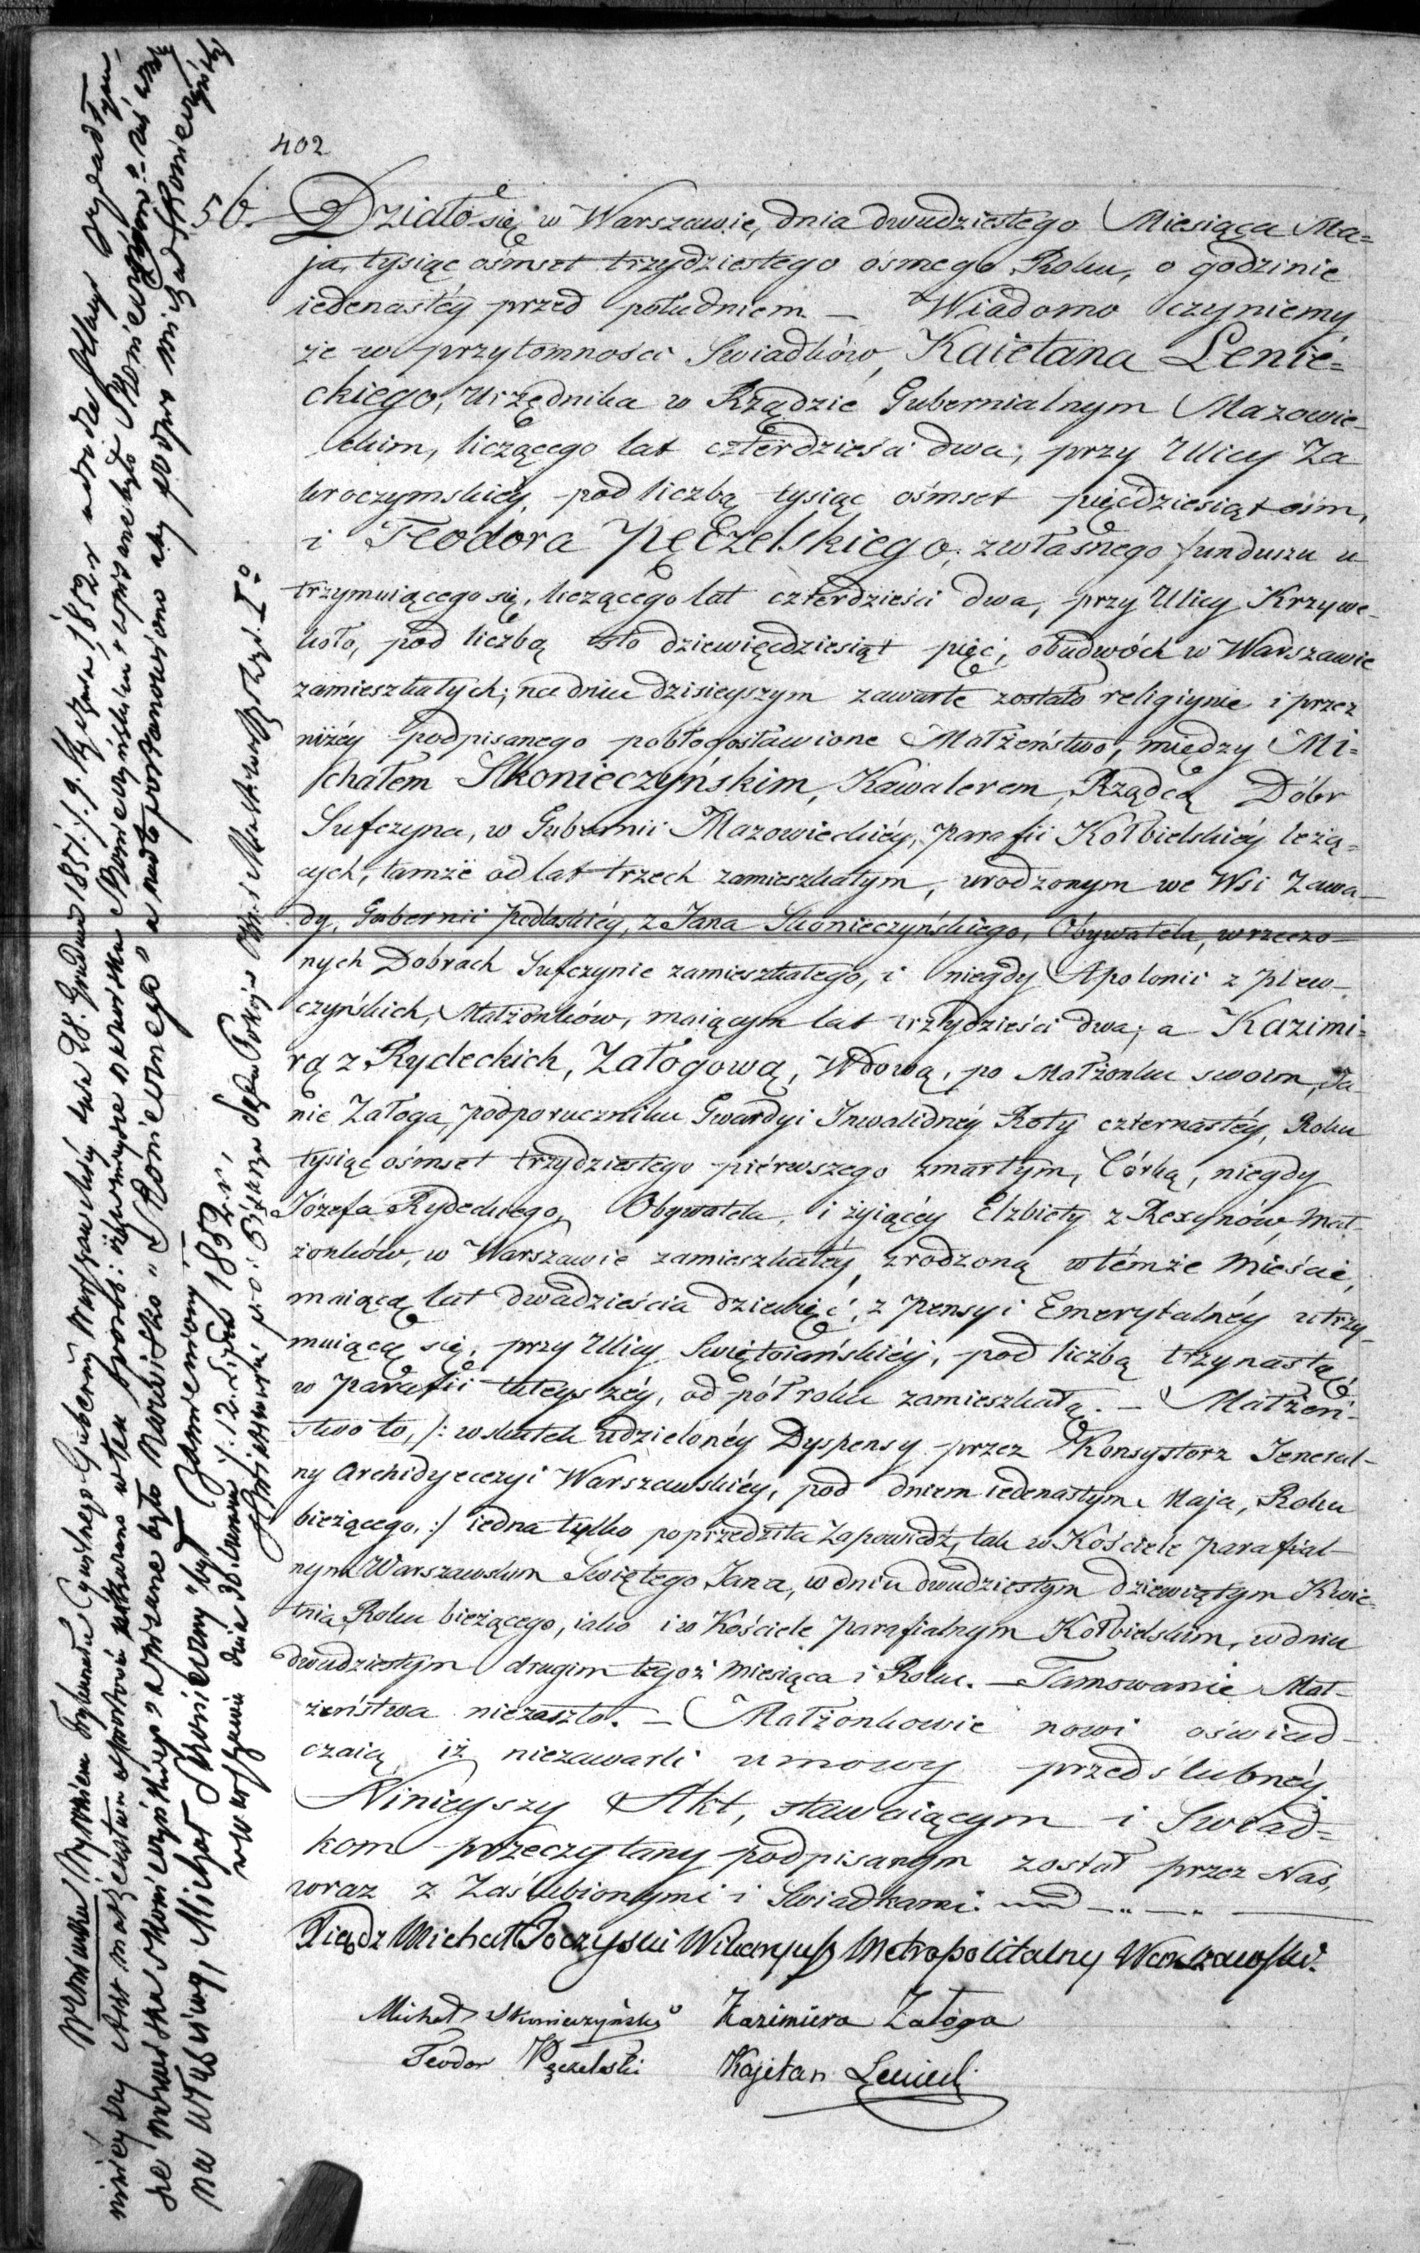 402
56. Działo się w Warszawie, dnia dwudziestego Miesiąca Ma=
ja, tysiąc ośmset trzydziestego ósmego Roku, o godzinie
iedenastéy przed południem — Wiadomo czyniemy
że w przytomności Swiadków, Kaietana Lenie=
ckiego, Urzędnika w Rządzie Gubernialnym Mazowie-
ckim, liczącego lat czterdzieści dwa, przy Ulicy Za
kroczymskiéy, pod liczbą tysiąc ośmset pięćdziesiąt ośm,
i Teodora Pęczelskiego, z własnego funduszu u
trzymuiącego się, liczącego lat czterdzieści dwa, przy Ulicy Krzywe-
koło, pod liczbą sto dziewięćdziesiąt pięć, obudwóch w Warszawie
zamieszkałych; na dniu dzisieyszym zawarte zostało religiynie i przez
niżéy podpisanego pobłogosławione Małżeństwo, między Mi=
chałem Skonieczyńskim, Kawalerem, Rządcą Dóbr
Sufczyna, w Gubernii Mazowieckiéy, Parafii Kołbielskiéy leżą=
cych, tamże od lat trzech zamieszkałym, urodzonym we Wsi Zawa-
dy, Gubernii Podlaskiéy, z Jana Skonieczyńskiego, Obywatela, w rzeczo-
nych Dobrach Sufczynie zamieszkałego, i niegdy Apolonii z Plew-
czyńskich, Małżonków, maiącym lat trzydzieści dwa; a Kazimi=
rą z Rydeckich, Załogową, Wdową, po Małżonku swoim, Ja-
nie Załoga, podporuczniku Gwardyi Inwalidnéy Roty czternastéy, Roku
tysiąc ośmset trzydziestego piérwszego zmarłym, Córką, niegdy
Józefa Rydeckiego, Obywatela, i żyiącéy Elżbiety z Rexynów, Mał-
żonków, w Warszawie zamieszkałéy, zrodzoną w témże Mieście,
maiącą lat dwadzieścia dziewięć, z Pensyi Emerytalnéy utrzy-
muiącą się, przy Ulicy Swiętoiańskiéy, pod liczbą trzynastą,
w Parafii tuteyszéy, od pół roku zamieszkałą. — Małżeń-
stwo to, /: w skutek udzielonéy Dyspensy przez Konsystorz Jeneral-
ny Archidyecezyi Warszawskiéy, pod dniem iedenastym Maja, Roku
bieżącego, :/ iedna tylko poprzedziła Zapowiedź, tak w Kościele Parafial-
nym Warszawskim Swiętego Jana, w dniu dwudziestym dziewiątym Kwie-
tnia, Roku bieżącego, iako i w Kościele Parafialnym Kołbielskim, w dniu
dwudziestym drugim tegoż Miesiąca i Roku. — Tamowanie Mał-
żeństwa niezaszło. — Małżonkowie nowi oświad-
czaią iż niezawarli umowy przedślubnéy.
Ninieyszy Akt, stawaiącym i Swiad=
kom przeczytany podpisanym został przez Nas,
wraz z Zaślubionymi i Swiadkami.
Xiądz Michał Poczyski Wikaryusz Metropolitalny Warszawski.
Michał Skonieczyński Kazimiera Załoga
Teodor Pęczelski Kajetan Leniecki
Wzmianka Wyrokiem Trybunału Cywilnego Gubernii Warszawskiéy dnia 28. Grudnia 1851./.9. Stycznia 1852 r
ninieyszy Akt małżeństwa w ten sposób:
na właściwe, Michał Skonieczny
w Warszawie dnia 30 Czerwca /.12. Lipca 1852 r.